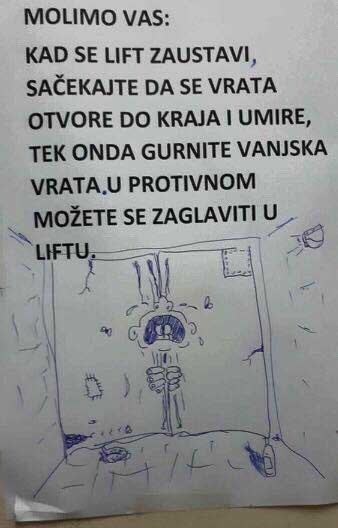 MOLIMO VAS:
KAD SE LIFT ZAUSTAVI,
SAČEKAJTE DA SE VRATA
OTVORE DO KRAJA I UMIRE,
TEK ONDA GURNITE VANJSKA
VRATA.U PROTIVNOM
MOŽETE SE ZAGLAVITI U
LIFTU.